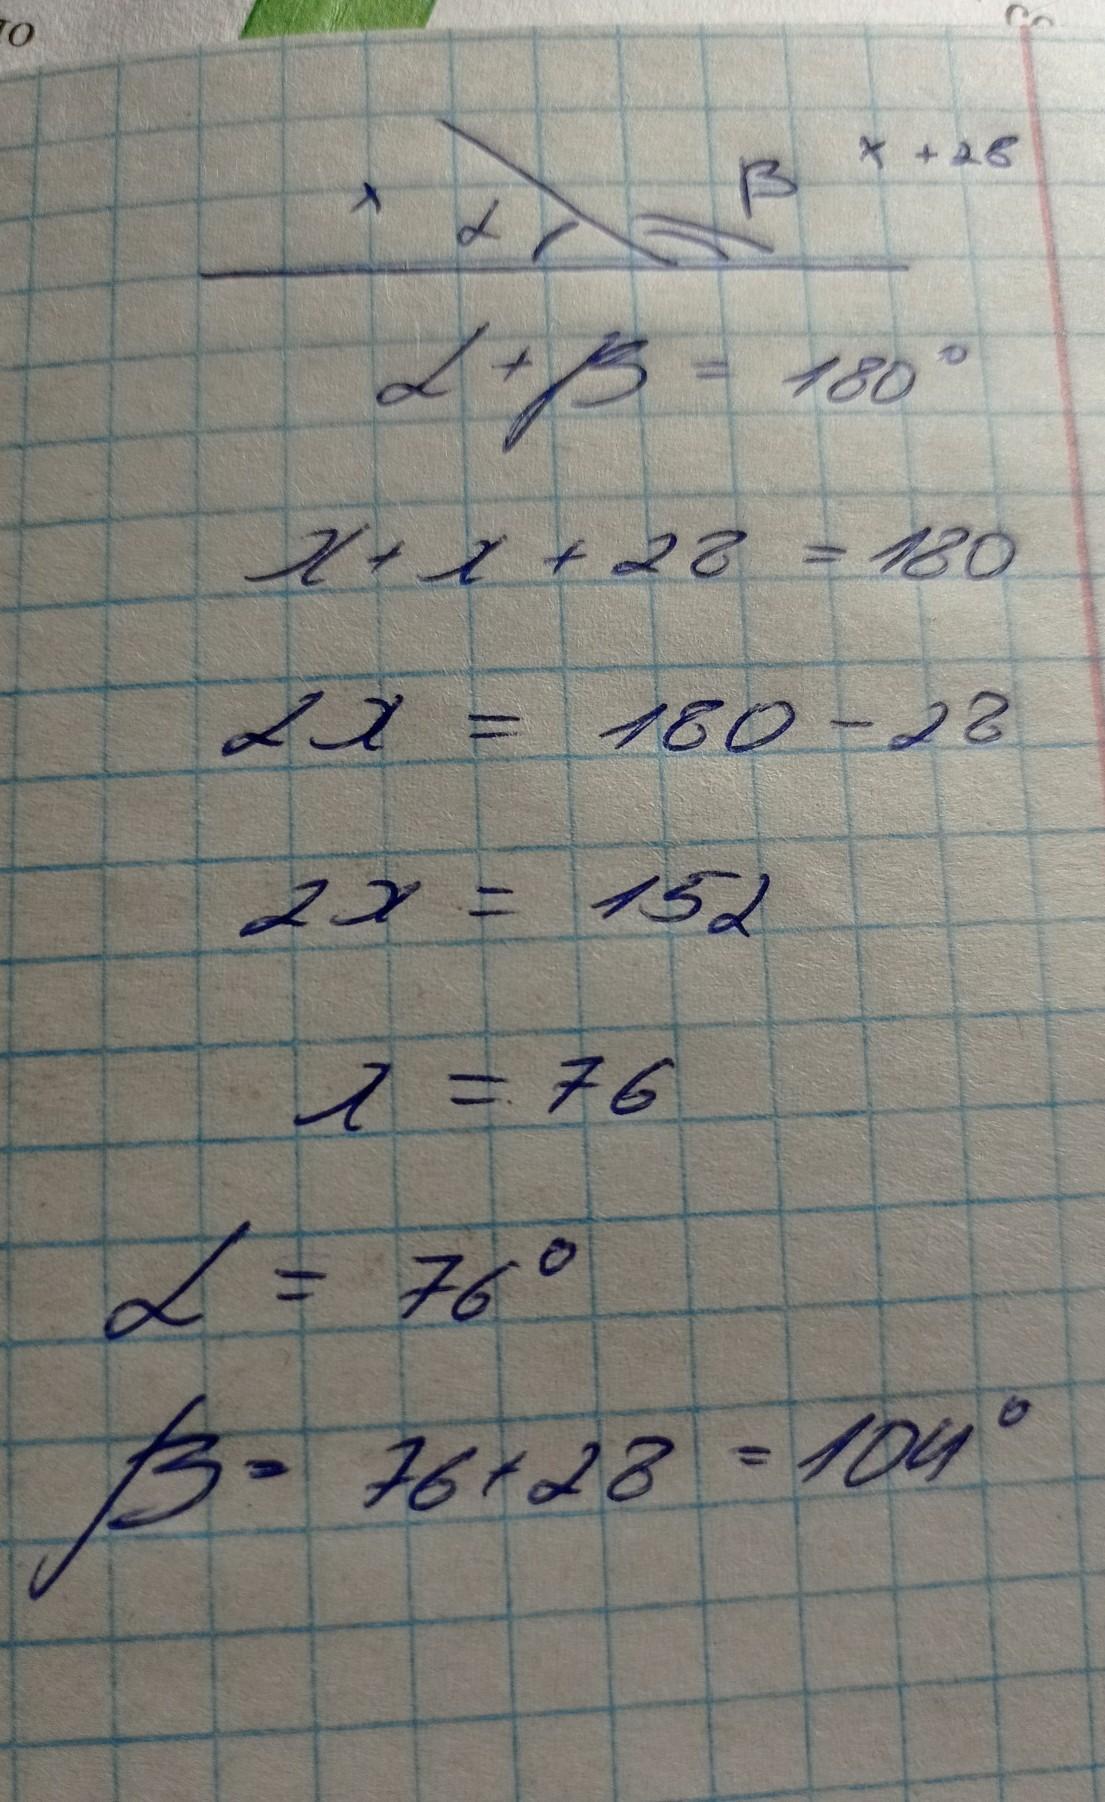 x α β x + 28
α + β = 180°
x + x + 28 = 180
2x = 180 - 28
2x = 152
x = 76
α = 76°
β = 76 + 28 = 104°